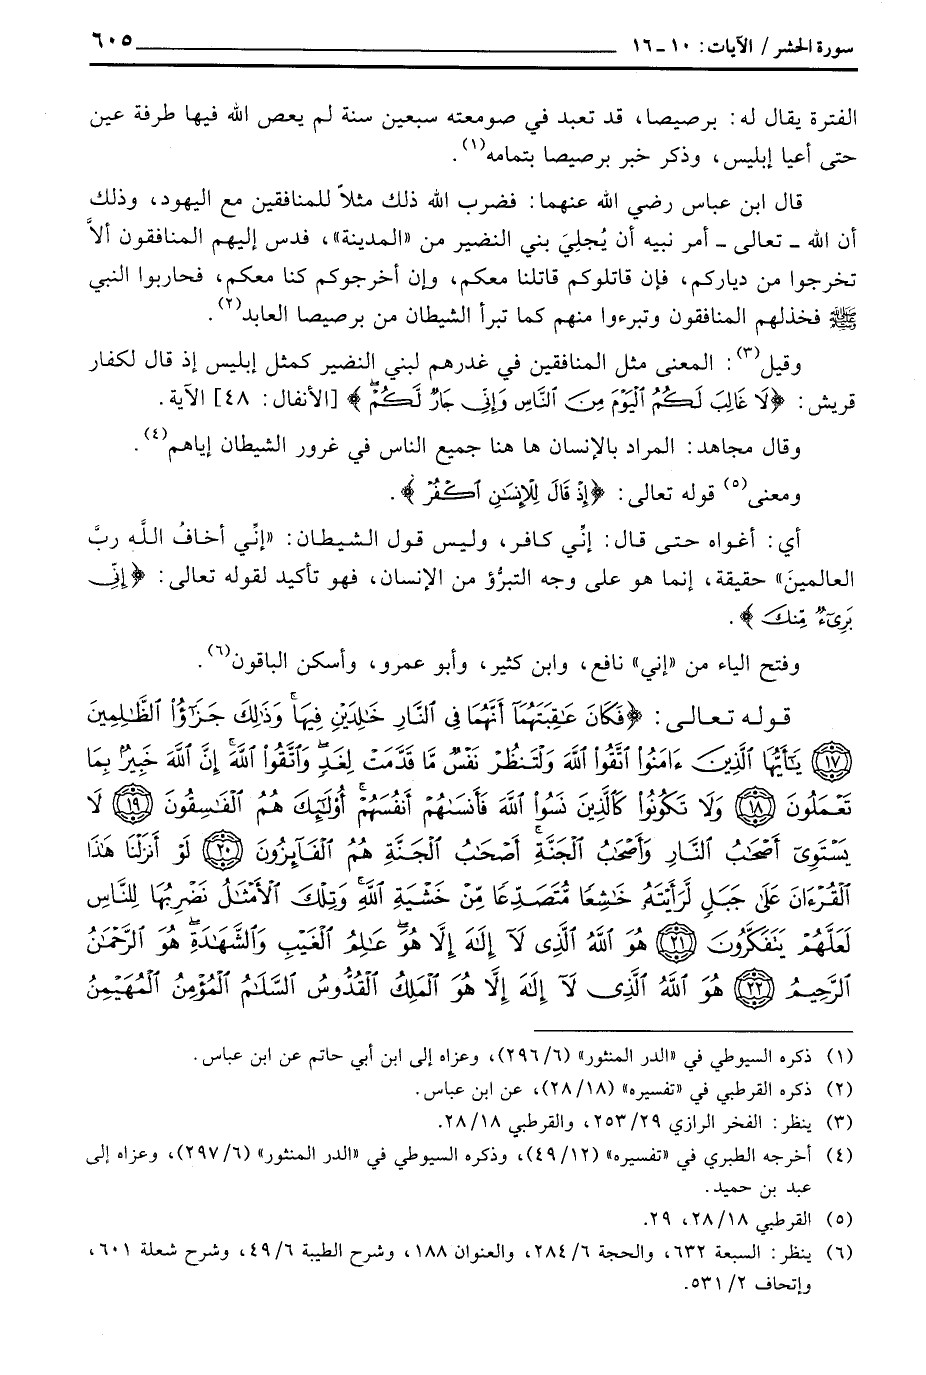 سورة الحشر / الآيات: ١٠ ـ ١٦ ٦٠٥
الفترة يقال له: برصيصا، قد تعبد في صومعته سبعين سنة لم يعص الله فيها طرفة عين
حتى أعيا إبليس، وذكر خبر برصيصا بتمامه(١).
قال ابن عباس رضي الله عنهما: فضرب الله ذلك مثلاً للمنافقين مع اليهود، وذلك
أن الله ـ تعالى ـ أمر نبيه أن يُجليَ بني النضير من «المدينة»، فدس إليهم المنافقون ألاَّ
تخرجوا من دياركم، فإن قاتلوكم قاتلنا معكم، وإن أخرجوكم كنا معكم، فحاربوا النبي
ﷺ فخذلهم المنافقون وتبرءوا منهم كما تبرأ الشيطان من برصيصا العابد(٢).
وقيل(٣): المعنى مثل المنافقين في غدرهم لبني النضير كمثل إبليس إذ قال لكفار
قريش: ﴿لَا غَالِبَ لَكُمُ ٱلۡيَوۡمَ مِنَ ٱلنَّاسِ وَإِنِّي جَارٞ لَّكُمۡۖ﴾ [الأنفال: ٤٨] الآية.
وقال مجاهد: المراد بالإنسان ها هنا جميع الناس في غرور الشيطان إياهم(٤).
ومعنى(٥) قوله تعالى: ﴿إِذۡ قَالَ لِلۡإِنسَٰنِ ٱكۡفُرۡ﴾.
أي: أغواه حتى قال: إنِّي كافر، وليس قول الشيطان: «إنِّي أخافُ اللَّه ربَّ
العالمينَ» حقيقة، إنما هو على وجه التبرُّؤ من الإنسان، فهو تأكيد لقوله تعالى: ﴿إِنِّي
بَرِيٓءٞ مِّنكَ﴾.
وفتح الياء من «إني» نافع، وابن كثير، وأبو عمرو، وأسكن الباقون(٦).
قوله تعالى: ﴿فَكَانَ عَٰقِبَتَهُمَآ أَنَّهُمَا فِي ٱلنَّارِ خَٰلِدَيۡنِ فِيهَاۚ وَذَٰلِكَ جَزَٰٓؤُاْ ٱلظَّٰلِمِينَ
١٧ يَٰٓأَيُّهَا ٱلَّذِينَ ءَامَنُواْ ٱتَّقُواْ ٱللَّهَ وَلۡتَنظُرۡ نَفۡسٞ مَّا قَدَّمَتۡ لِغَدٖۖ وَٱتَّقُواْ ٱللَّهَۚ إِنَّ ٱللَّهَ خَبِيرُۢ بِمَا
تَعۡمَلُونَ ١٨ وَلَا تَكُونُواْ كَٱلَّذِينَ نَسُواْ ٱللَّهَ فَأَنسَىٰهُمۡ أَنفُسَهُمۡۚ أُوْلَٰٓئِكَ هُمُ ٱلۡفَٰسِقُونَ ١٩ لَا
يَسۡتَوِيٓ أَصۡحَٰبُ ٱلنَّارِ وَأَصۡحَٰبُ ٱلۡجَنَّةِۚ أَصۡحَٰبُ ٱلۡجَنَّةِ هُمُ ٱلۡفَآئِزُونَ ٢٠ لَوۡ أَنزَلۡنَا هَٰذَا
ٱلۡقُرۡءَانَ عَلَىٰ جَبَلٖ لَّرَأَيۡتَهُۥ خَٰشِعٗا مُّتَصَدِّعٗا مِّنۡ خَشۡيَةِ ٱللَّهِۚ وَتِلۡكَ ٱلۡأَمۡثَٰلُ نَضۡرِبُهَا لِلنَّاسِ
لَعَلَّهُمۡ يَتَفَكَّرُونَ ٢١ هُوَ ٱللَّهُ ٱلَّذِي لَآ إِلَٰهَ إِلَّا هُوَۖ عَٰلِمُ ٱلۡغَيۡبِ وَٱلشَّهَٰدَةِۖ هُوَ ٱلرَّحۡمَٰنُ
ٱلرَّحِيمُ ٢٢ هُوَ ٱللَّهُ ٱلَّذِي لَآ إِلَٰهَ إِلَّا هُوَ ٱلۡمَلِكُ ٱلۡقُدُّوسُ ٱلسَّلَٰمُ ٱلۡمُؤۡمِنُ ٱلۡمُهَيۡمِنُ
(١) ذكره السيوطي في «الدر المنثور» (٦/ ٢٩٦)، وعزاه إلى ابن أبي حاتم عن ابن عباس.
(٢) ذكره القرطبي في «تفسيره» (١٨/ ٢٨)، عن ابن عباس.
(٣) ينظر: الفخر الرازي ٢٩/ ٢٥٣، والقرطبي ١٨/ ٢٨.
(٤) أخرجه الطبري في «تفسيره» (١٢/ ٤٩)، وذكره السيوطي في «الدر المنثور» (٦/ ٢٩٧)، وعزاه إلى
عبد بن حميد.
(٥) القرطبي ١٨/ ٢٨، ٢٩.
(٦) ينظر: السبعة ٦٣٢، والحجة ٦/ ٢٨٤، والعنوان ١٨٨، وشرح الطيبة ٦/ ٤٩، وشرح شعلة ٦٠١،
وإتحاف ٢/ ٥٣١.